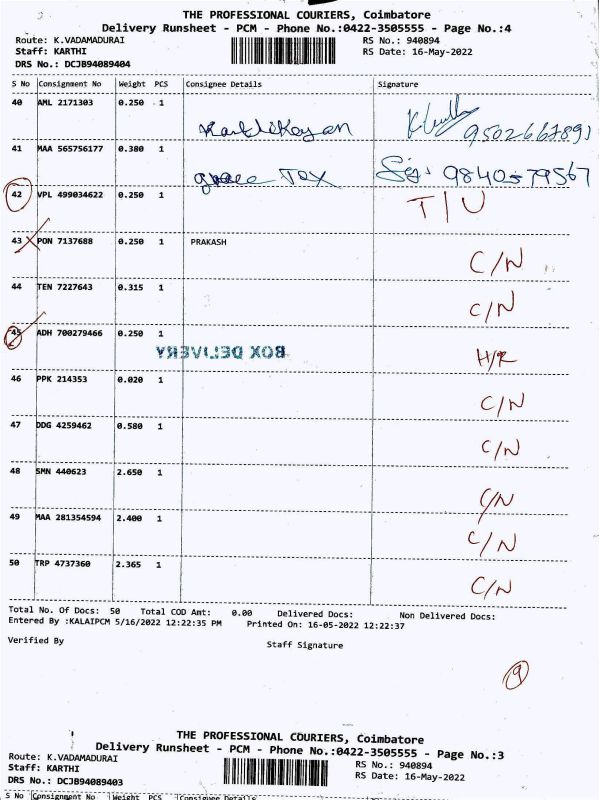 THE PROFESSIONAL COURIERS, Coimbatore
Delivery Runsheet - PCM - Phone No.:0422-3505555 - Page No.:4
Route: K.VADAMADURAI RS No.: 940894
Staff: KARTHI RS Date: 16-May-2022
DRS No.: DCJB94089404
S No Consignment No Weight PCS Consignee Details Signature
40 AML 2171303 0.250 1
Karthikeyan 9502667891
41 MAA 565756177 0.380 1
grace Tex 9840579567
42 VPL 499034622 0.250 1 T/U
43 PON 7137688 0.250 1 PRAKASH C/N
44 TEN 7227643 0.315 1 C/N
45 ADH 700279466 0.250 1 H/R
BOX DELIVERY
46 PPK 214353 0.020 1 C/N
47 DDG 4259462 0.580 1 C/N
48 SMN 440623 2.650 1 C/N
49 MAA 281354594 2.400 1 C/N
50 TRP 4737360 2.365 1 C/N
Total No. Of Docs: 50 Total COD Amt: 0.00 Delivered Docs: Non Delivered Docs:
Entered By :KALAIPCM 5/16/2022 12:22:35 PM Printed On: 16-05-2022 12:22:37
Verified By Staff Signature
9
THE PROFESSIONAL COURIERS, Coimbatore
Delivery Runsheet - PCM - Phone No.:0422-3505555 - Page No.:3
Route: K.VADAMADURAI RS No.: 940894
Staff: KARTHI RS Date: 16-May-2022
DRS No.: DCJB94089403
S No Consignment No Weight PCS Consignee Details